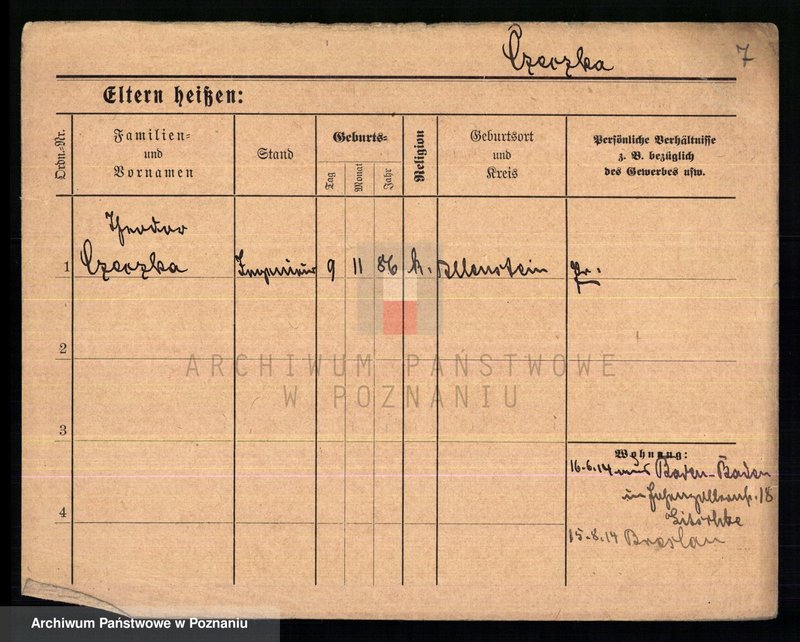 Czeczka 7
Eltern heißen:
Ordn.-Nr.
Familien- und Vornamen
Stand
Geburts-
Tag
Monat
Jahr
Religion
Geburtsort und Kreis
Persönliche Verhältnisse
z. B. bezüglich
des Gewerbes usw.
Theodor
1 Czeczka Ingenieur 9 11 86 k. Allenstein Pr.
2
ARCHIWUM PAŃSTWOWE
W POZNANIU
3
Wohnung:
16.6.14 aus Baden-Baden
in Hohenzollernstr. 18
4
15.8.14 Breslau
Archiwum Państwowe w Poznaniu